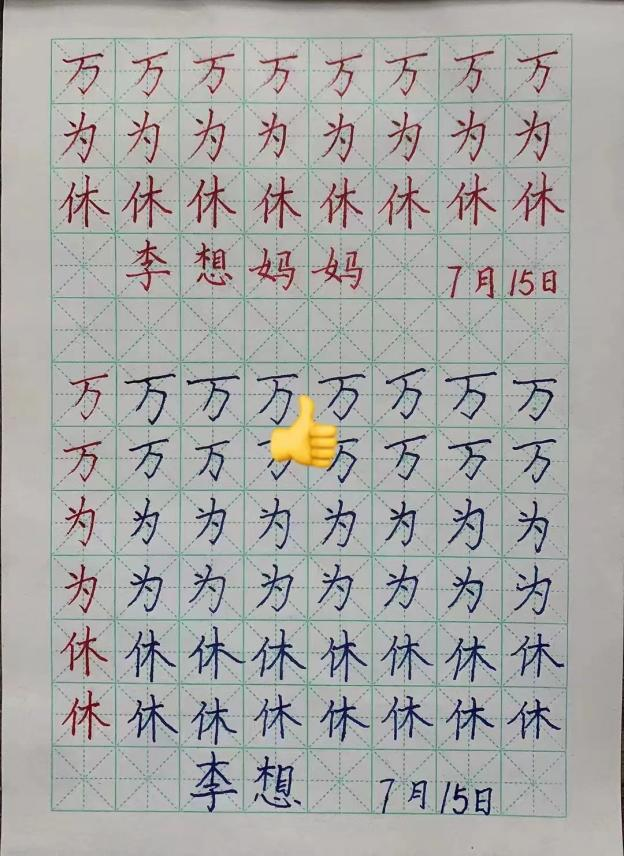 万万万万万万万万
为为为为为为为为
休休休休休休休休
李想妈妈 7月15日
万万万万万万万万
万万万万万万万万
为为为为为为为为
为为为为为为为为
休休休休休休休休
休休休休休休休休
李想 7月15日